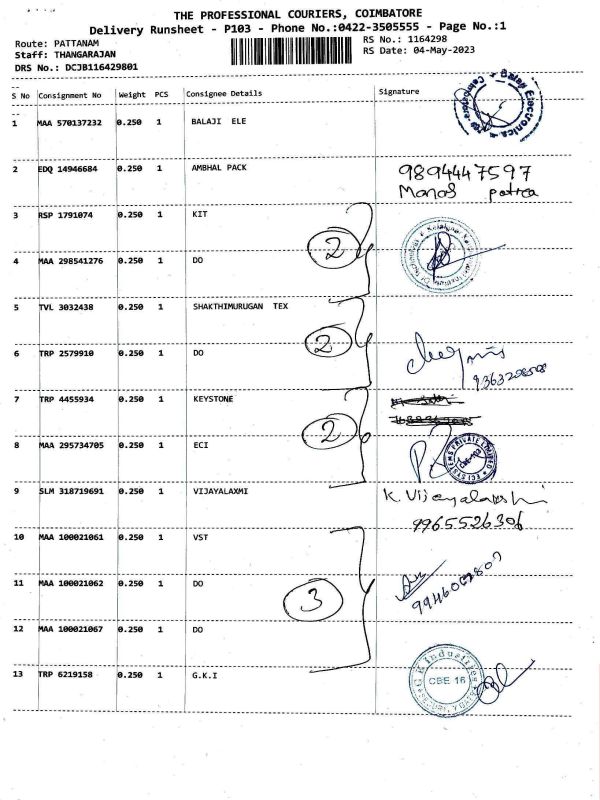 THE PROFESSIONAL COURIERS, COIMBATORE
Delivery Runsheet - P103 - Phone No.:0422-3505555 - Page No.:1
Route: PATTANAM
RS No.: 1164298
Staff: THANGARAJAN
RS Date: 04-May-2023
DRS No.: DCJB116429801
S No Consignment No Weight PCS Consignee Details Signature
1 MAA 570137232 0.250 1 BALAJI ELE
Balaji Electronics
2 EDQ 14946684 0.250 1 AMBHAL PACK
9894447597
Manas patra
3 RSP 1791074 0.250 1 KIT
2
4 MAA 298541276 0.250 1 DO
5 TVL 3032438 0.250 1 SHAKTHIMURUGAN TEX
2
6 TRP 2579910 0.250 1 DO
7 TRP 4455934 0.250 1 KEYSTONE
2
8 MAA 295734705 0.250 1 ECI
ECI SYSTEMS PRIVATE LIMITED
CBE-103
9 SLM 318719691 0.250 1 VIJAYALAXMI
K. Vijayalakshmi
9965526306
10 MAA 100021061 0.250 1 VST
11 MAA 100021062 0.250 1 DO
3
9946002807
12 MAA 100021067 0.250 1 DO
13 TRP 6219158 0.250 1 G.K.I
G K Industries
CBE 16
SECURITY GATE